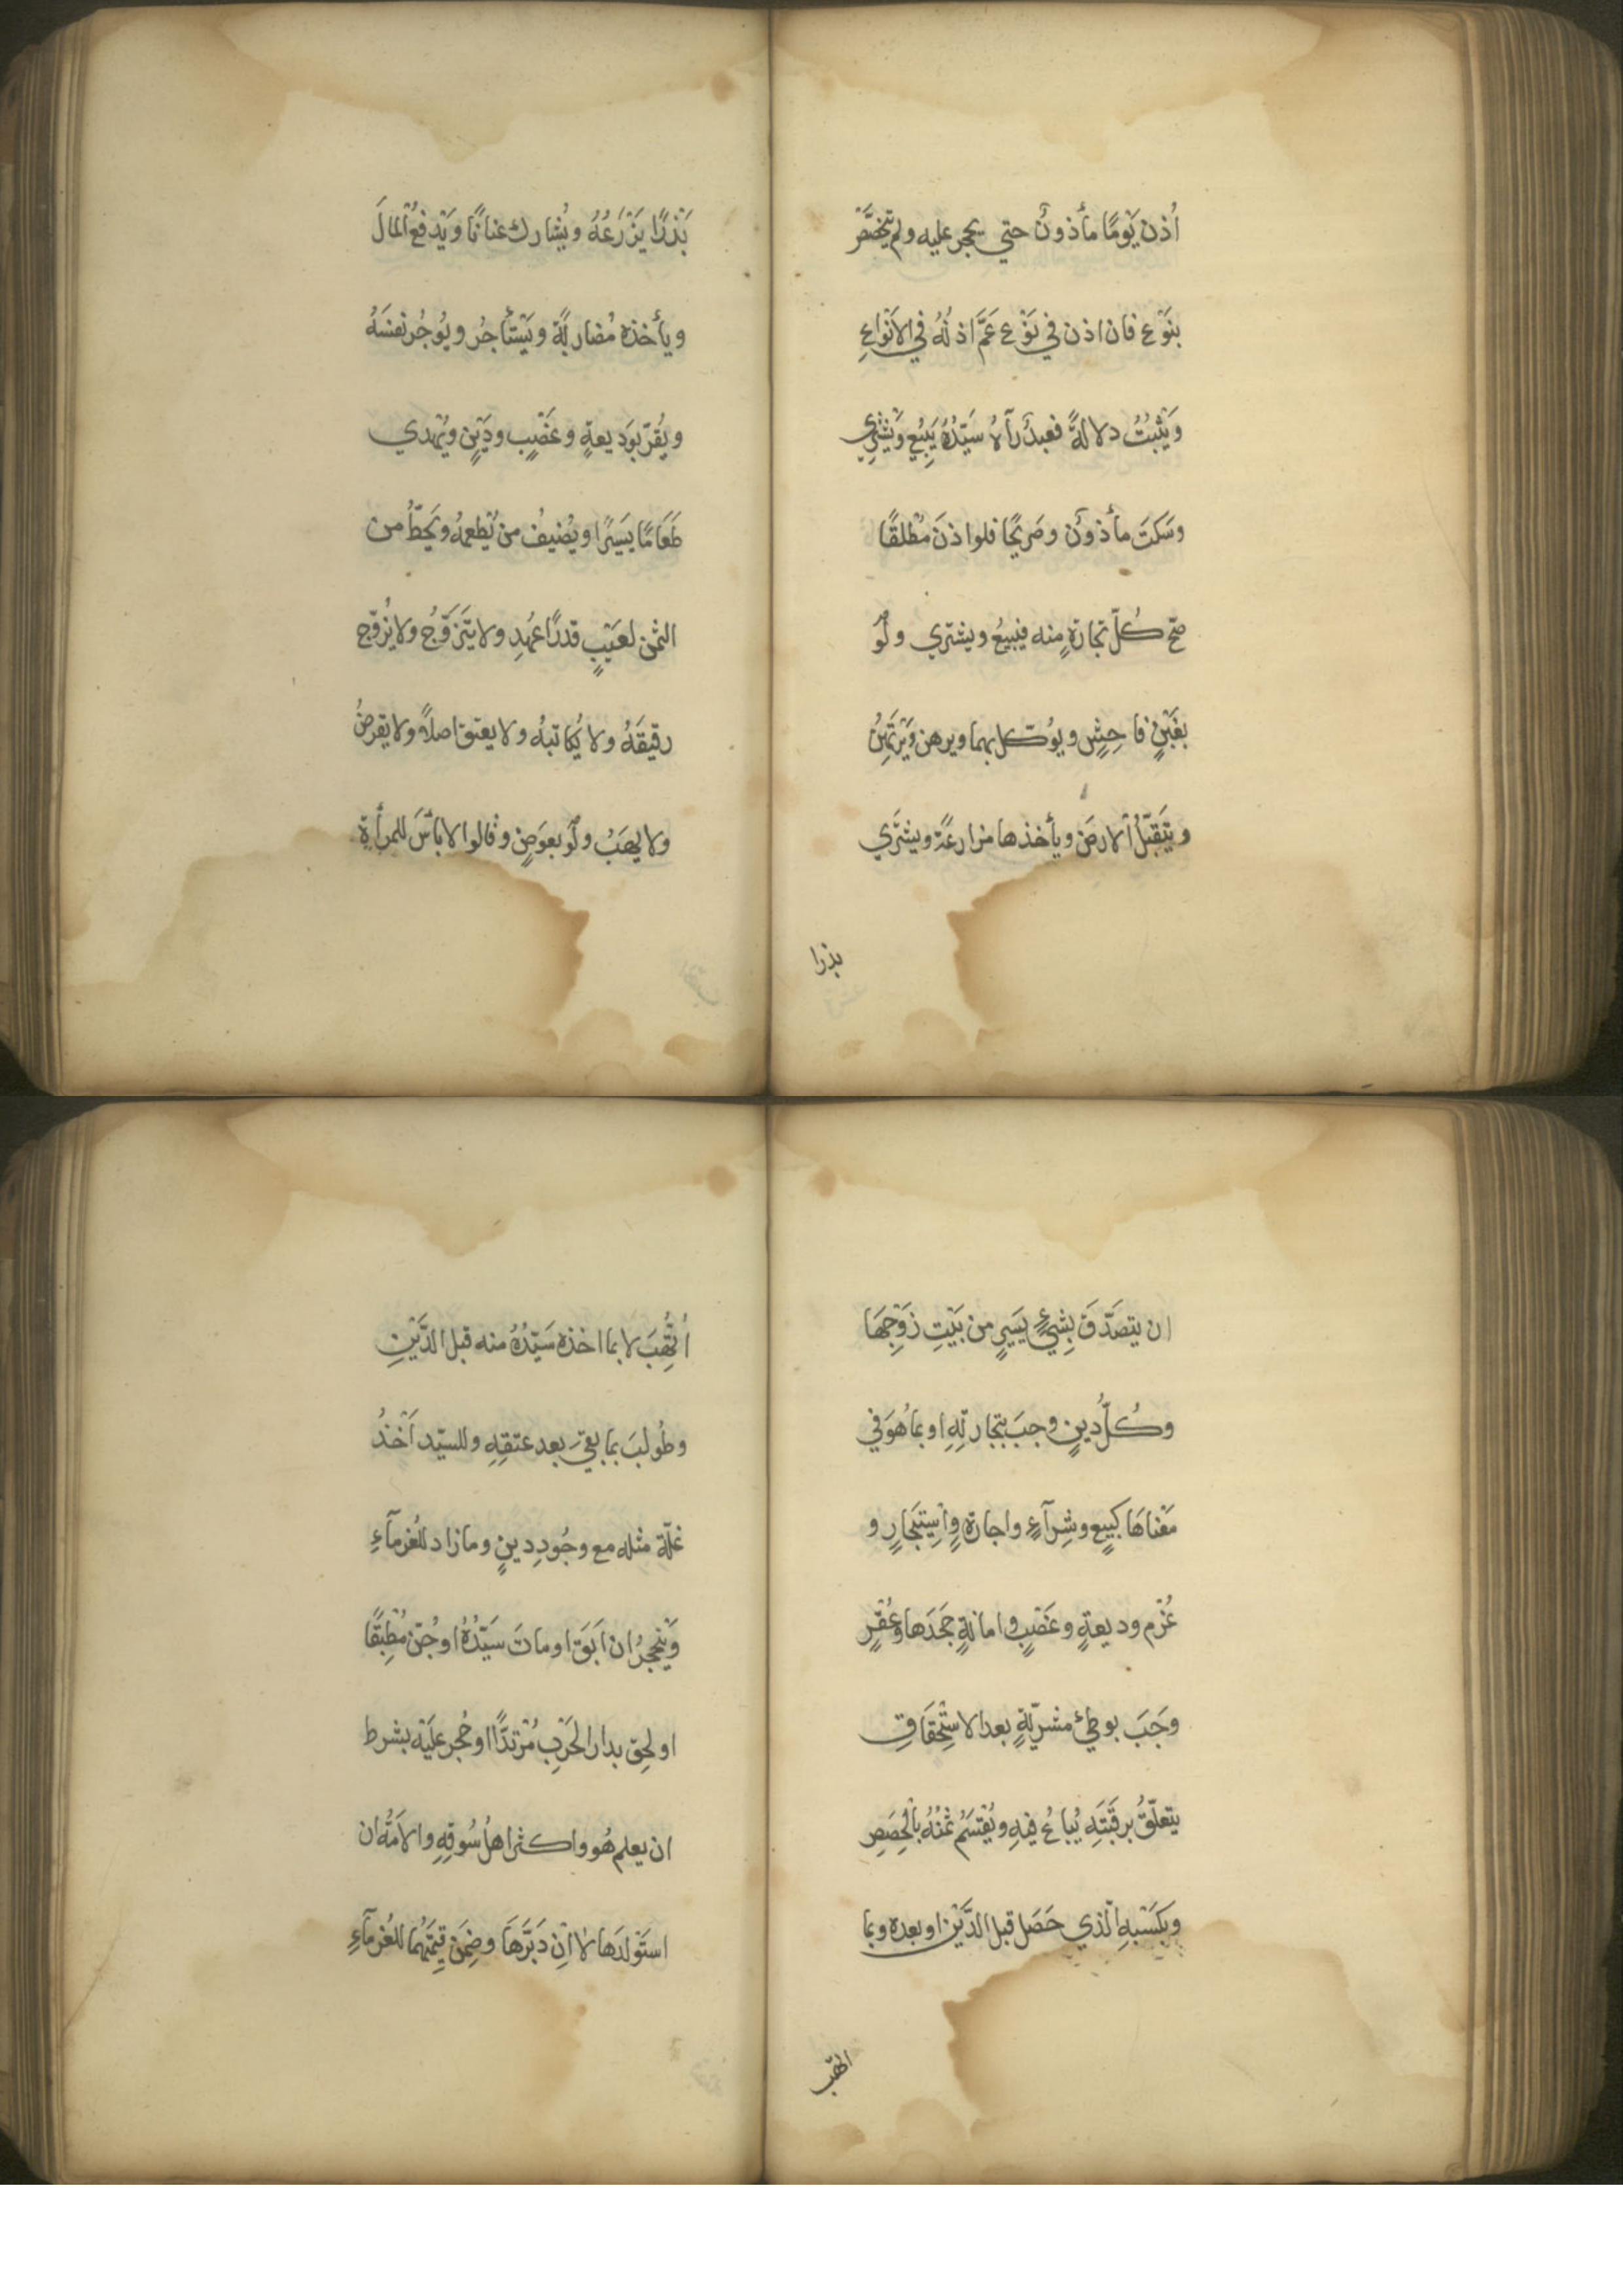 اُذن يَوْمًا مأذونٌ حتي يحجر عليه ولم يتخصَّصْ
بنَوْعٍ فان اذن في نَوْعٍ عَمَّ اذنُهُ في الاَنْوَاعِ
وَيَثْبُتُ دلالةً فعبدٌ رآهُ سَيّدُهُ يَبِيْعُ وَيَشْتَرِي
وسَكَتَ مأذونٌ وصَرِيْحًا فلو اذنَ مُطْلقًا
صحّ كُلّ تجارةٍ منه فيبيعُ ويشتري ولَوْ
بغَبْنٍ فاحِشٍ ويُوَكّل بهما ويرهن وَيَرْتَهِنُ
ويَتَقَبّلُ الارضَ ويأخذها مزارعَةً ويشتَري
بذرا
بَذْرًا يَزْرَعُهُ ويُشارك عنانًا وَيَدْفَعُ المالَ
ويأخذه مُضاربَةً ويَسْتَأجُر ويُوجُر نفسَهُ
ويُقرّ بوَدِيعةٍ وغَصْبٍ ودَيْنٍ ويُهدي
طَعَامًا يَسِيْرًا ويُضيفُ من يُطعِمهُ ويَحُطّ من
الثمن لعَيْبٍ قدرًا عُهِدِ ولا يَتَزَوَّجُ ولا يُزوّج
رقيقَهُ ولا يُكاتبهُ ولا يعتق اصلاً ولا يقرضُ
ولا يهَبُ ولَوْ بعوَضٍ وقالوا لا بأسَ للمرأةِ
ان يتصَدّقَ بِشيءٍ يَسِيرٍ من بَيْتِ زَوْجِهَا
وكُلُّ دينٍ وجبَ بتجارتِهِ او بما هُوَ في
مَعْناهَا كبيعٍ وشِرآءٍ واجارةٍ واسْتِيْجارٍ و
غُرْم وديعةٍ وغَصْبٍ وامانةٍ جَحَدَها وعُقْرٍ
وجَبَ بوطئ مشريّةٍ بعد الاسْتِحْقَاقِ
يتعلّقُ برقَبَتِهِ يُباعُ فيهِ ويُقْتسَمُ ثمنُهُ بالحِصَصِ
وبكَسْبهِ الّذي حَصَل قبل الدَّيْن او بعده وبما
اتّهب
اُتُّهِبَ لا بما اخذه سَيّدُهُ منه قبل الدَّيْنِ
وطُولبَ بما بقيَ بعد عتقِهِ وللسيّد اَخْذُ
غلّةِ مثله مع وجُودِ دينٍ وما زاد للغُرمآءِ
وَيَنْحجِرُ ان اَبَقَ او ماتَ سَيّدُهُ او جُنّ مُطْبِقًا
او لحِق بدار الحَرْبِ مُرْتدًّا او حُجر علَيْه بشرط
ان يعلم هُو واكثر اهلُ سُوقِهِ والاَمَةُ ان
استَوْلدَها لا اِنْ دَبَّرَهَا وضمَنَ قِيْمَتَهُمَا للغُرمآءِ